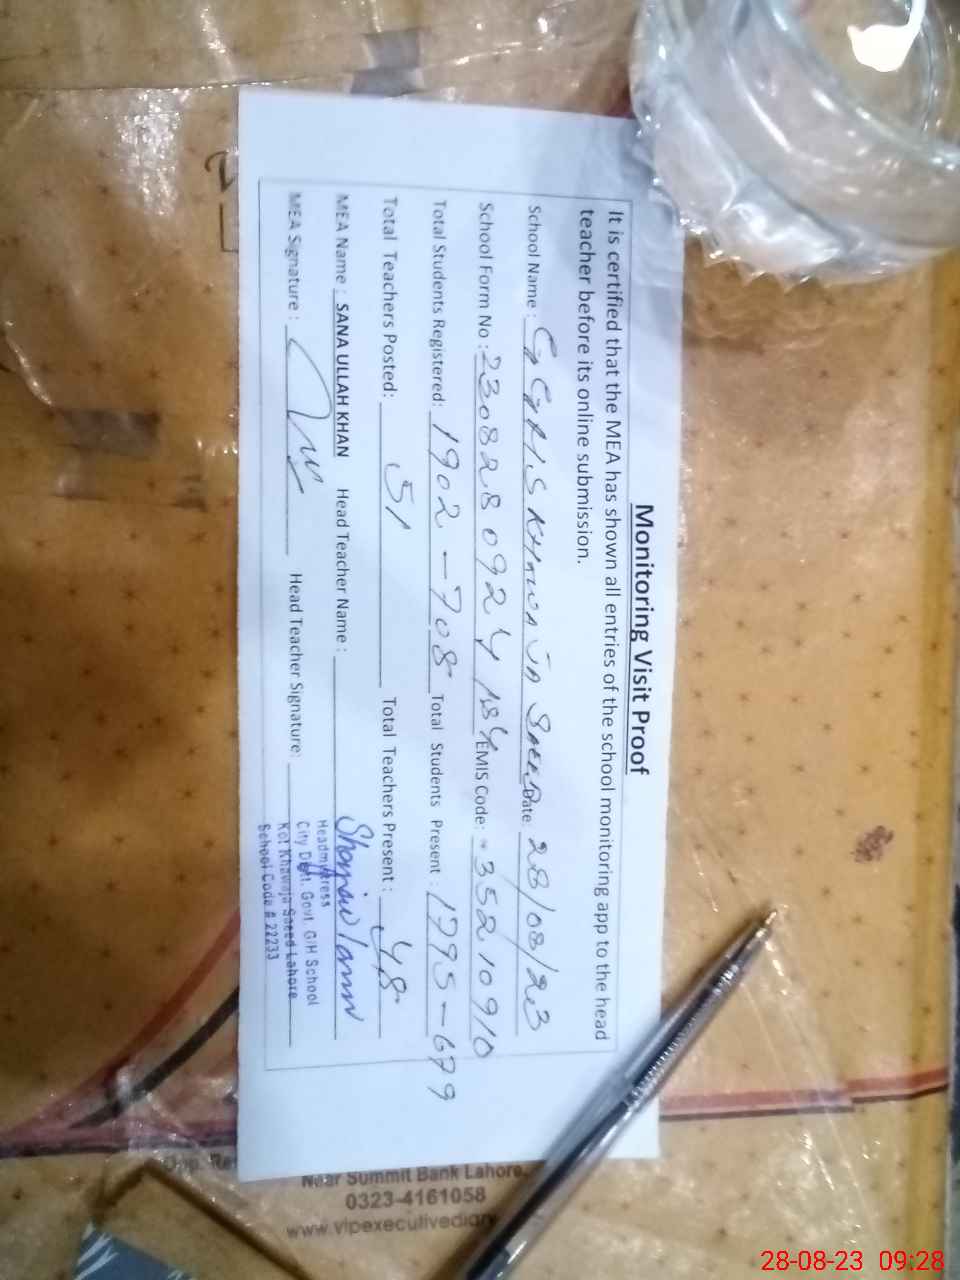 Monitoring Visit Proof
It is certified that the MEA has shown all entries of the school monitoring app to the head
teacher before its online submission.
School Name : Date: 28/08/23
School Form No : EMIS Code: 35210910
Total Students Registered: 1902 - 708 Total Students Present : 1795 - 679
Total Teachers Posted: 51 Total Teachers Present : 48
MEA Name : SANA ULLAH KHAN Head Teacher Name :
MEA Signature : Head Teacher Signature:
Headmistress
City Distt. Govt. G/H School
Kot Khawaja Saeed Lahore
School Code # 22233
Opp.
Near Summit Bank Lahore.
0323-4161058
www.vipexecutivediary
28-08-23 09:28